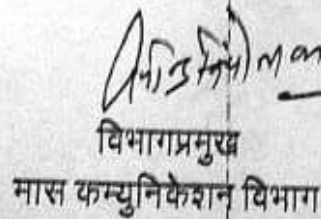 विभागप्रमुख
मास कम्युनिकेशन विभाग